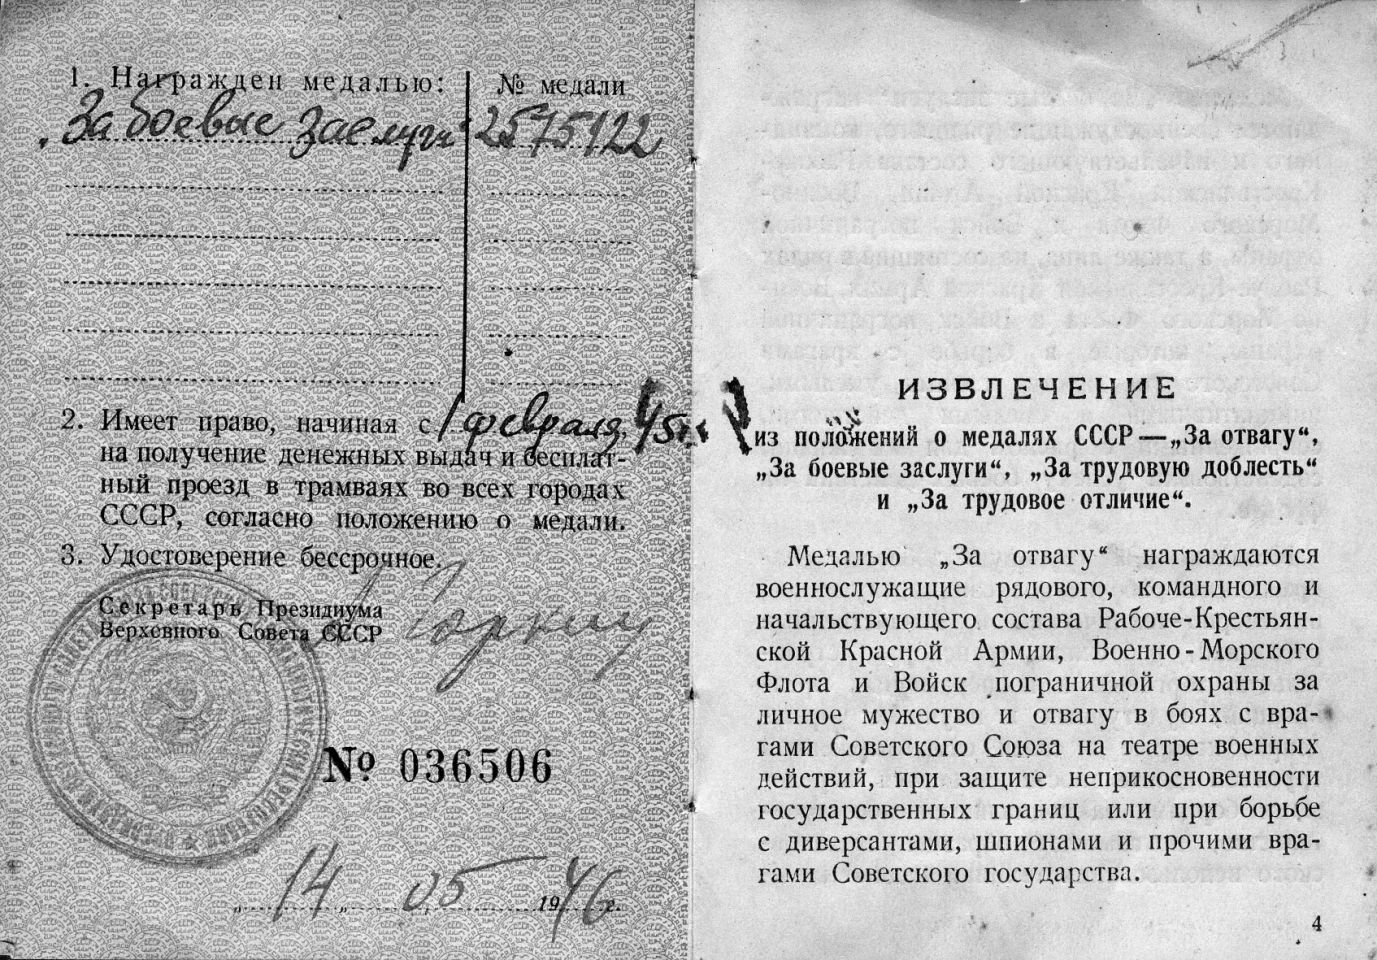 1. Награжден медалью:
№ медали
„За боевые заслуги“
2575122
2. Имеет право, начиная с 1 февраля 45г.,
на получение денежных выдач и бесплат-
ный проезд в трамваях во всех городах
СССР, согласно положению о медали.
3. Удостоверение бессрочное.
Секретарь Президиума
Верховного Совета СССР
Горкин
№ 036506
„14“ 05 1946г.
ИЗВЛЕЧЕНИЕ
из положений о медалях СССР—„За отвагу“,
„За боевые заслуги“, „За трудовую доблесть“
и „За трудовое отличие“.
Медалью „За отвагу“ награждаются
военнослужащие рядового, командного и
начальствующего состава Рабоче-Крестьян-
ской Красной Армии, Военно-Морского
Флота и Войск пограничной охраны за
личное мужество и отвагу в боях с вра-
гами Советского Союза на театре военных
действий, при защите неприкосновенности
государственных границ или при борьбе
с диверсантами, шпионами и прочими вра-
гами Советского государства.
4